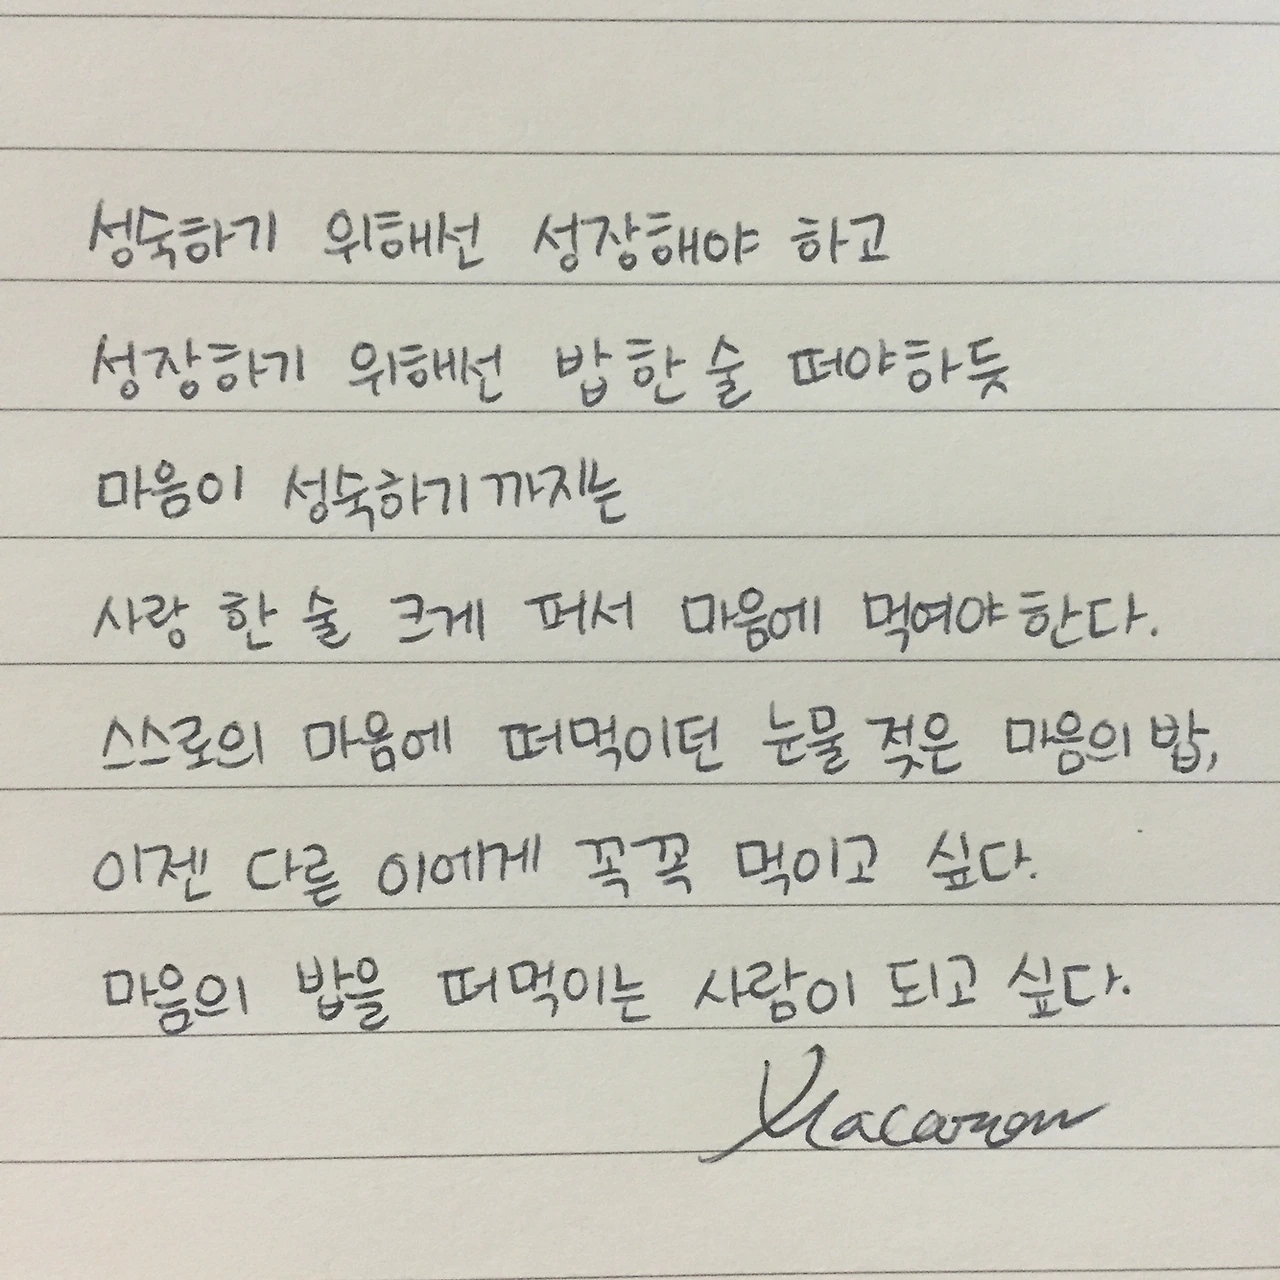 성숙하기 위해선 성장해야 하고
성장하기 위해선 밥 한 술 떠야하듯
마음이 성숙하기까지는
사랑 한 술 크게 퍼서 마음에 먹여야한다.
스스로의 마음에 떠먹이던 눈물 젖은 마음의 밥,
이젠 다른 이에게 꼭꼭 먹이고 싶다.
마음의 밥을 떠먹이는 사람이 되고 싶다.
Macaron